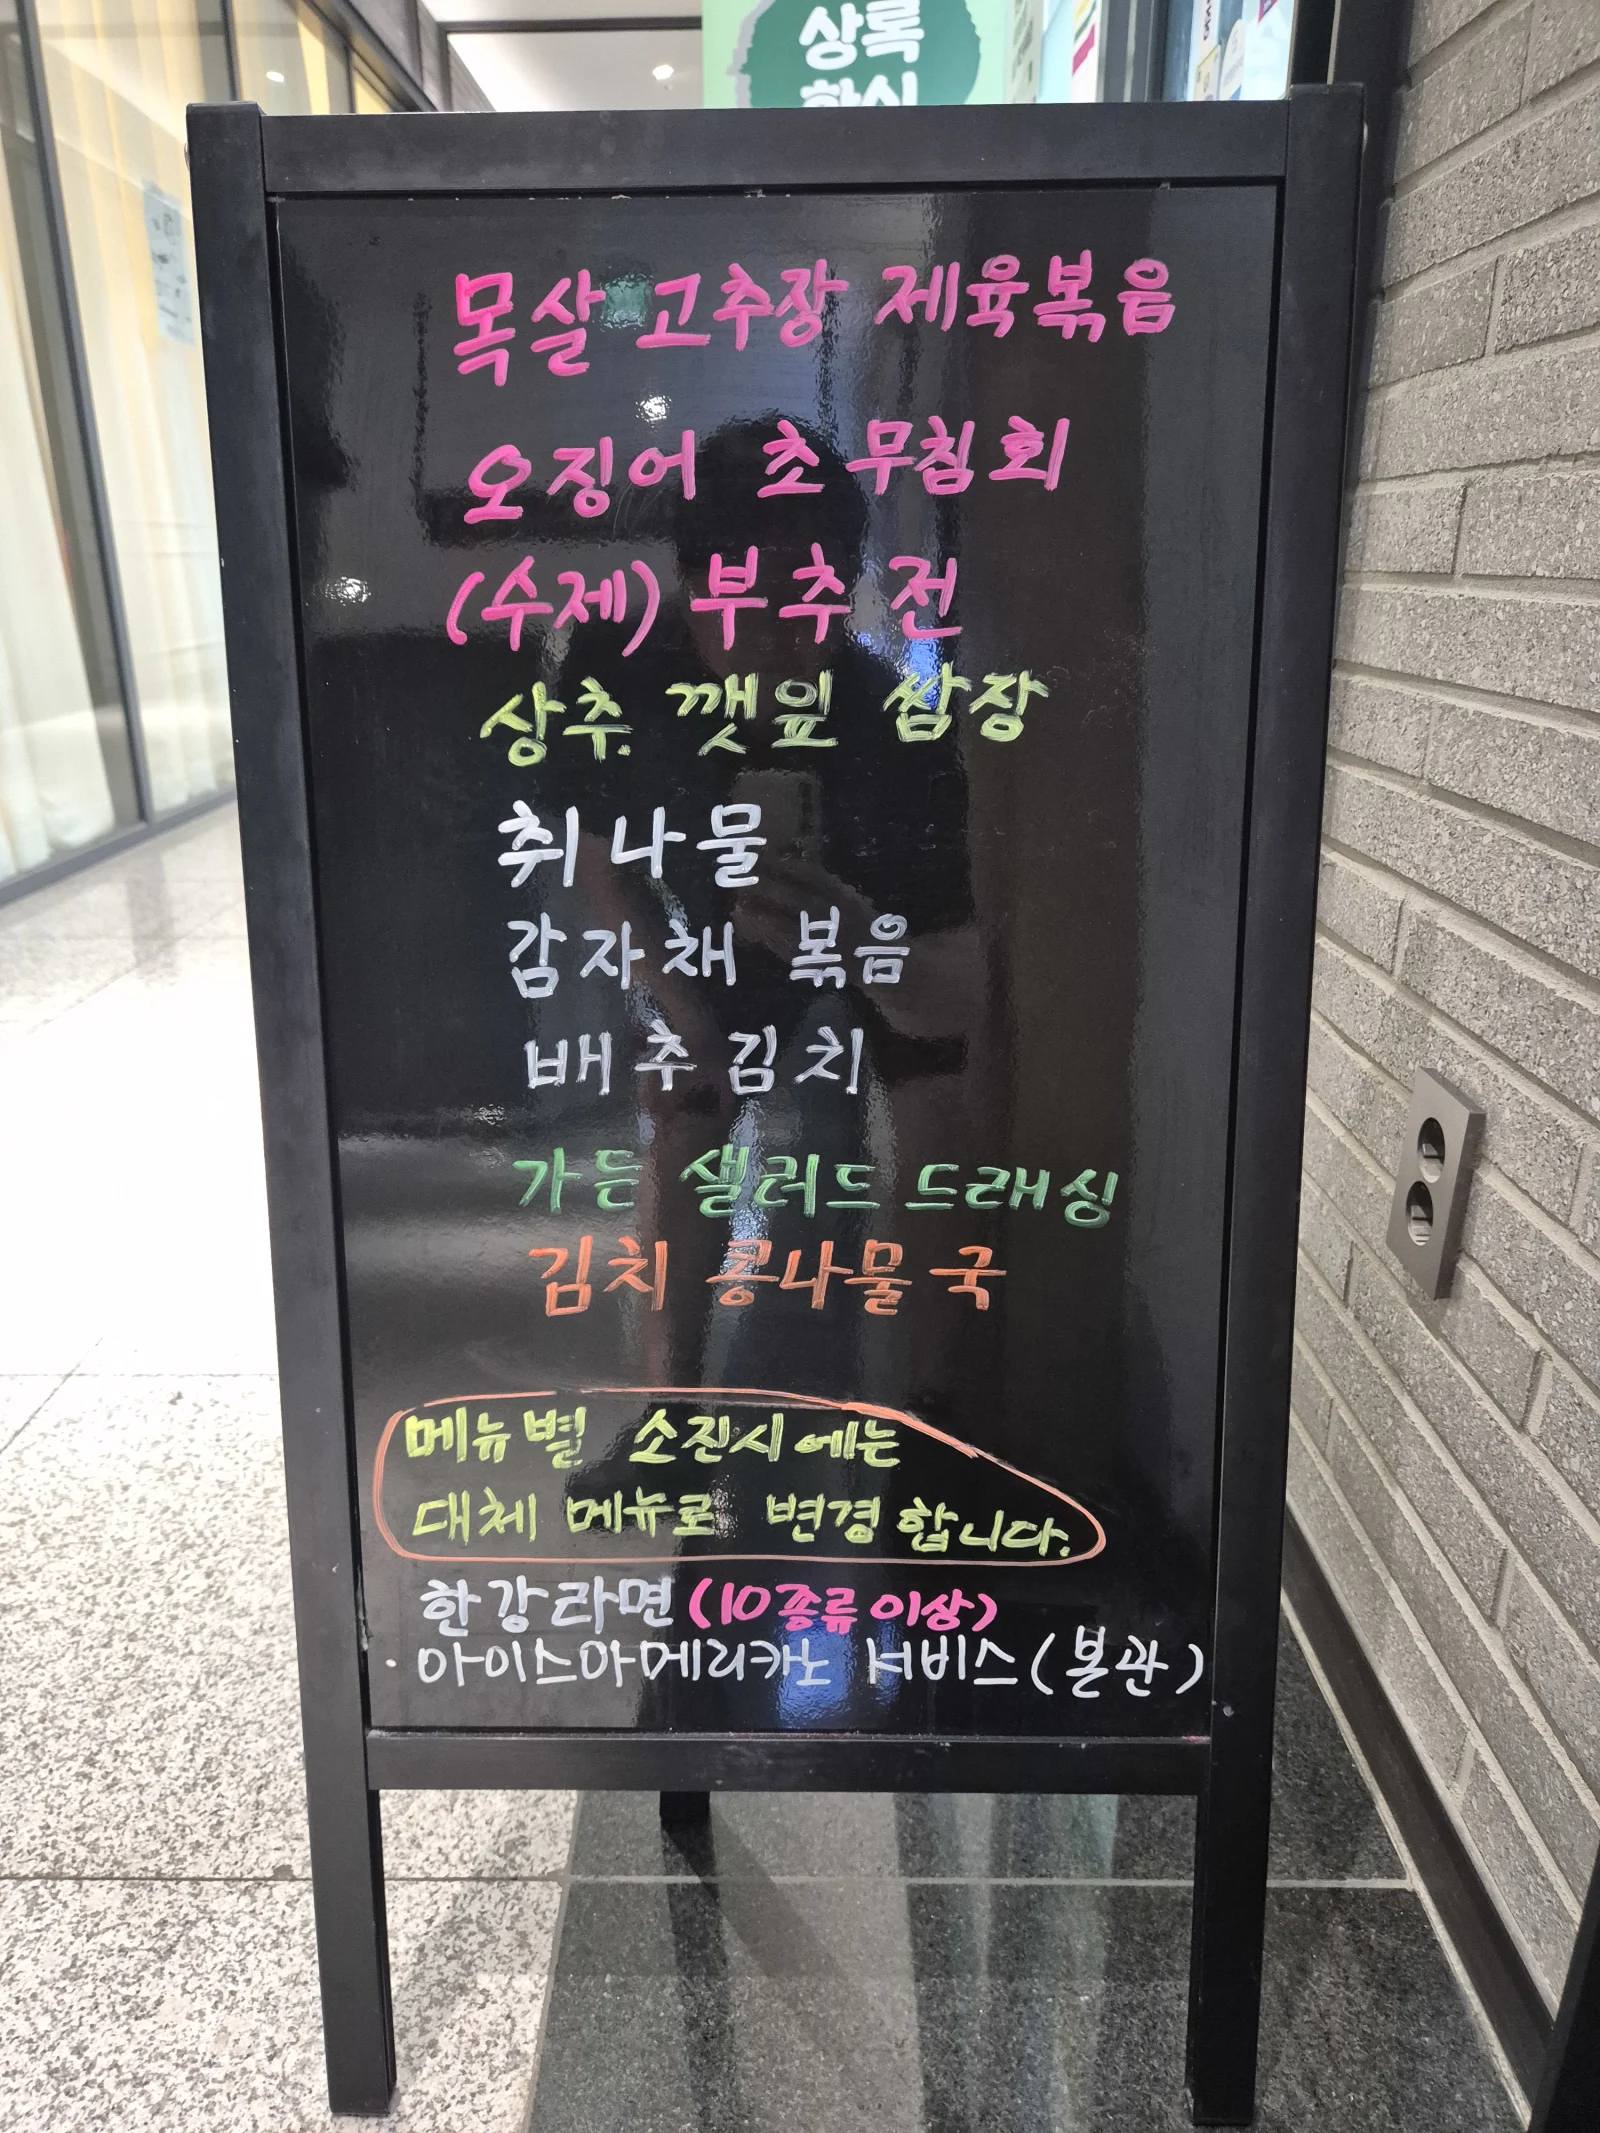 상록
한식
목살 고추장 제육볶음
오징어 초무침회
(수제) 부추전
상추. 깻잎 쌈장
취나물
감자채 볶음
배추김치
가든 샐러드 드래싱
김치 콩나물국
메뉴별 소진시에는
대체 메뉴로 변경합니다.
한강라면 (10종류이상)
· 아이스아메리카노 서비스 (본관)